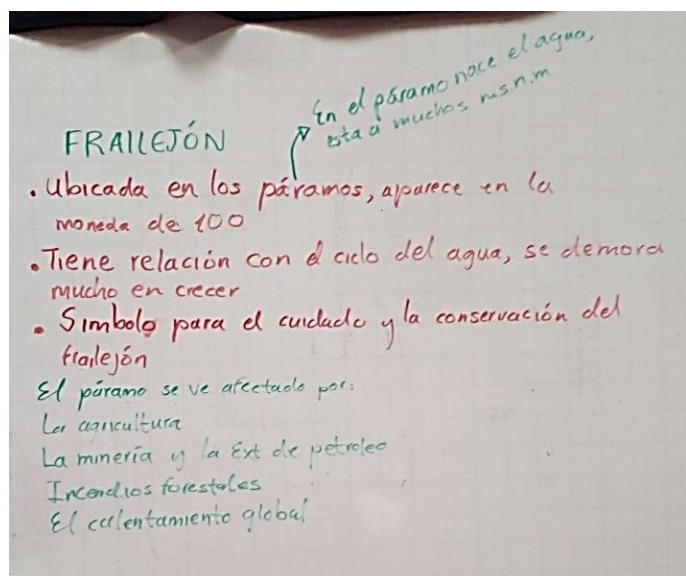 En el páramo nace el agua,
esta a muchos m.s.n.m
FRAILEJÓN
. Ubicada en los páramos, aparece en la
moneda de 100
. Tiene relación con el ciclo del agua, se demora
mucho en crecer
. Simbolo para el cuidado y la conservación del
frailejón
El páramo se ve afectado por:
La agricultura
La minería y la Ext de petroleo
Incendios forestales
El calentamiento global